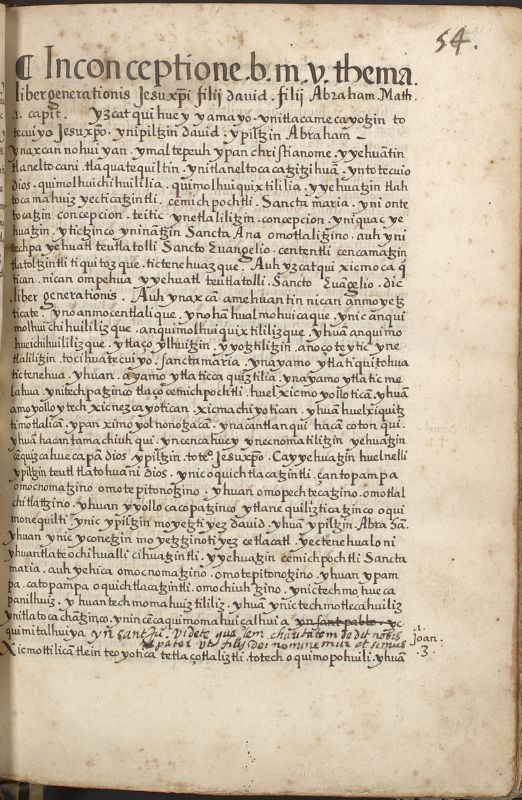 54.
¶ In conceptione . b. m. v. thema.
liber generationis Jesu xp̄i filij david . filij Abraham Math.
.1. capit . yzcat qui huey yamayo . ynitlacamecayotzin to
tecuiyo Jesuxp̄o . ynipiltzin david . ypiltzin Abraham –
ynaxcan nohuiyan . ymaltepeuh ypan christianome . yyehuātin
tlaneltocani . tlaquatequiltin . ynitlaneltocacatzitzihuā . ynto tecuio
dios . quimolhuichihuililia . quimolhuiquixtililia . yyehuatzin tlah
tocamahuiz yecticatzintli . cemichpochtli . Sancta maria . yni onte
tocatzin concepcion . teitic ynetlaliliztzin . concepcion . yniquac ye
huatzin . ytictzinco ynināātzin Sancta Ana omotlalitzino . auh yni
techpa yehuatl teutlatolli Sancto Euangelio . centētli cencamatzin
tlatoltzintli tiquitozque . tictenehuazque . Auh yzcatqui xicmocaq̄
tican . nican ompehua yyehuatl teutlatolli . Sancto Euāgelio . dic
. liber generationis . Auh ynaxcā amehuantin nican anmoyetz
ticate . yno anmocentlalique . yno hā hualmohuicaque . ynic anqui
molhuichihuililizque . anquimolhuiquixtililizque . yhuā anquimo
hueichihuililizque . ytlaço ylhuitzin . yyoztiliztzin . anoço teytic yne
tlaliliztzin . tocihuatecuiyo . sancta maria . ynayamo ytla tiquitohua
tictenehua . yhuan . ayamo ytlaticca quiztilia . ynayamo ytla ticme
lahua . ynitechpatzinco tlaço cemichpochtli . huel xicmoyollotican . yhuā
amoyolloytech xicnezcayotican . xicmachiyotican . yhuā huelxiquitz
timotlalicā . ypan ximoyolnonotzacā . ynacantlanqui hacā coton qui .
yhuā hacan tamachiuh qui . yn cenca huey ynecnomatiliztzin yehuatzin
cēquizcahuecapā dios ypiltzin . toteo. Jesuxp̄o . Ca yyehuatzin huelnelli
ypiltzin teutl tlatohuani dios . ynic oquichtlacatzintli . çan topampa
omocnomatzino . omotepitonotzino . yhuan omopechtecatzino . omotlal
chitlatzino . yhuan yyollocacopatzinco ytlanequiliztica tzinco oqui
monequilti ynic ypiltzin moyetzti yez david . yhuā ypiltzin Abrahā .
yhuan ynic yconetzin moyetztzinoti yez cetlacatl . yectenehualoni
yhuantlateochihualli cihuatzintli . yyehuatzin cemichpochtli Sancta
maria . auh yehica omocnomatzino . omotepitonotzino . yhuan ypam
pa . ca topampa oquichtlacatzintli . omochiuhtzino . ynictechmohueca
panilhuiz . yhuan techmomahuiztililiz . yhuā ynictechmotlecahuiliz
ynitlatocachātzinco . ynin ceca quimomahuiçalhuia yn sant pablo . yc
quimitalhuiya yn sant Juā . videte qualem charitatem dedit nobis
pater vt filij dei nominemur et simus
.1. joan. 3.
Xicmottilicā tlein teoyotica tetlaçotlaliztli . totech oquimopohuili . yhuā